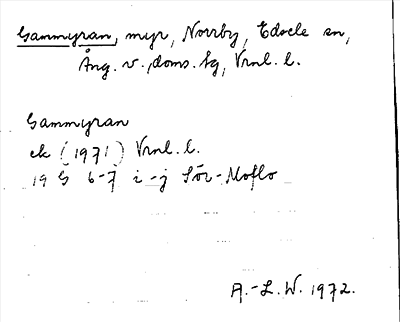 Gammyran, myr, Norrby, Edsele sn,
Ång. v. doms. tg, Vrnl. l.
Gammyran
ek (1971) Vrnl. l.
19 G 6-7 i-j Sör-Moflo
A.-L. W. 1972.